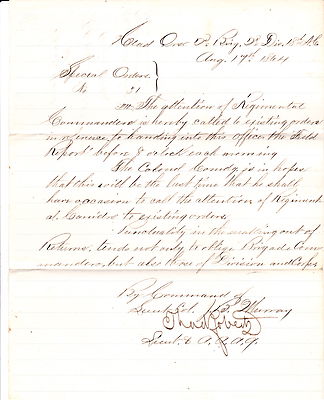 Head Qrs 2d Brig. 2d Div. 18th A.C.
Aug. 17th 1864
Special Orders }
No 21 }
III. The attention of Regimental
Commanders is hereby called to existing orders
in reference to handing into this office the Field
Report before 8 o'clock each morning
The Colonel Comd'g is in hopes
that this will be the last time that he shall
have occasion to call the attention of Regiment
al Comdrs to existing orders,
Punctuality in the making out of
Returns, tends not only to oblige Brigade Com
manders, but also those of Division and Corps.
By Command of
Lieut Col. Murray
Lieut. & A.A.A.G.